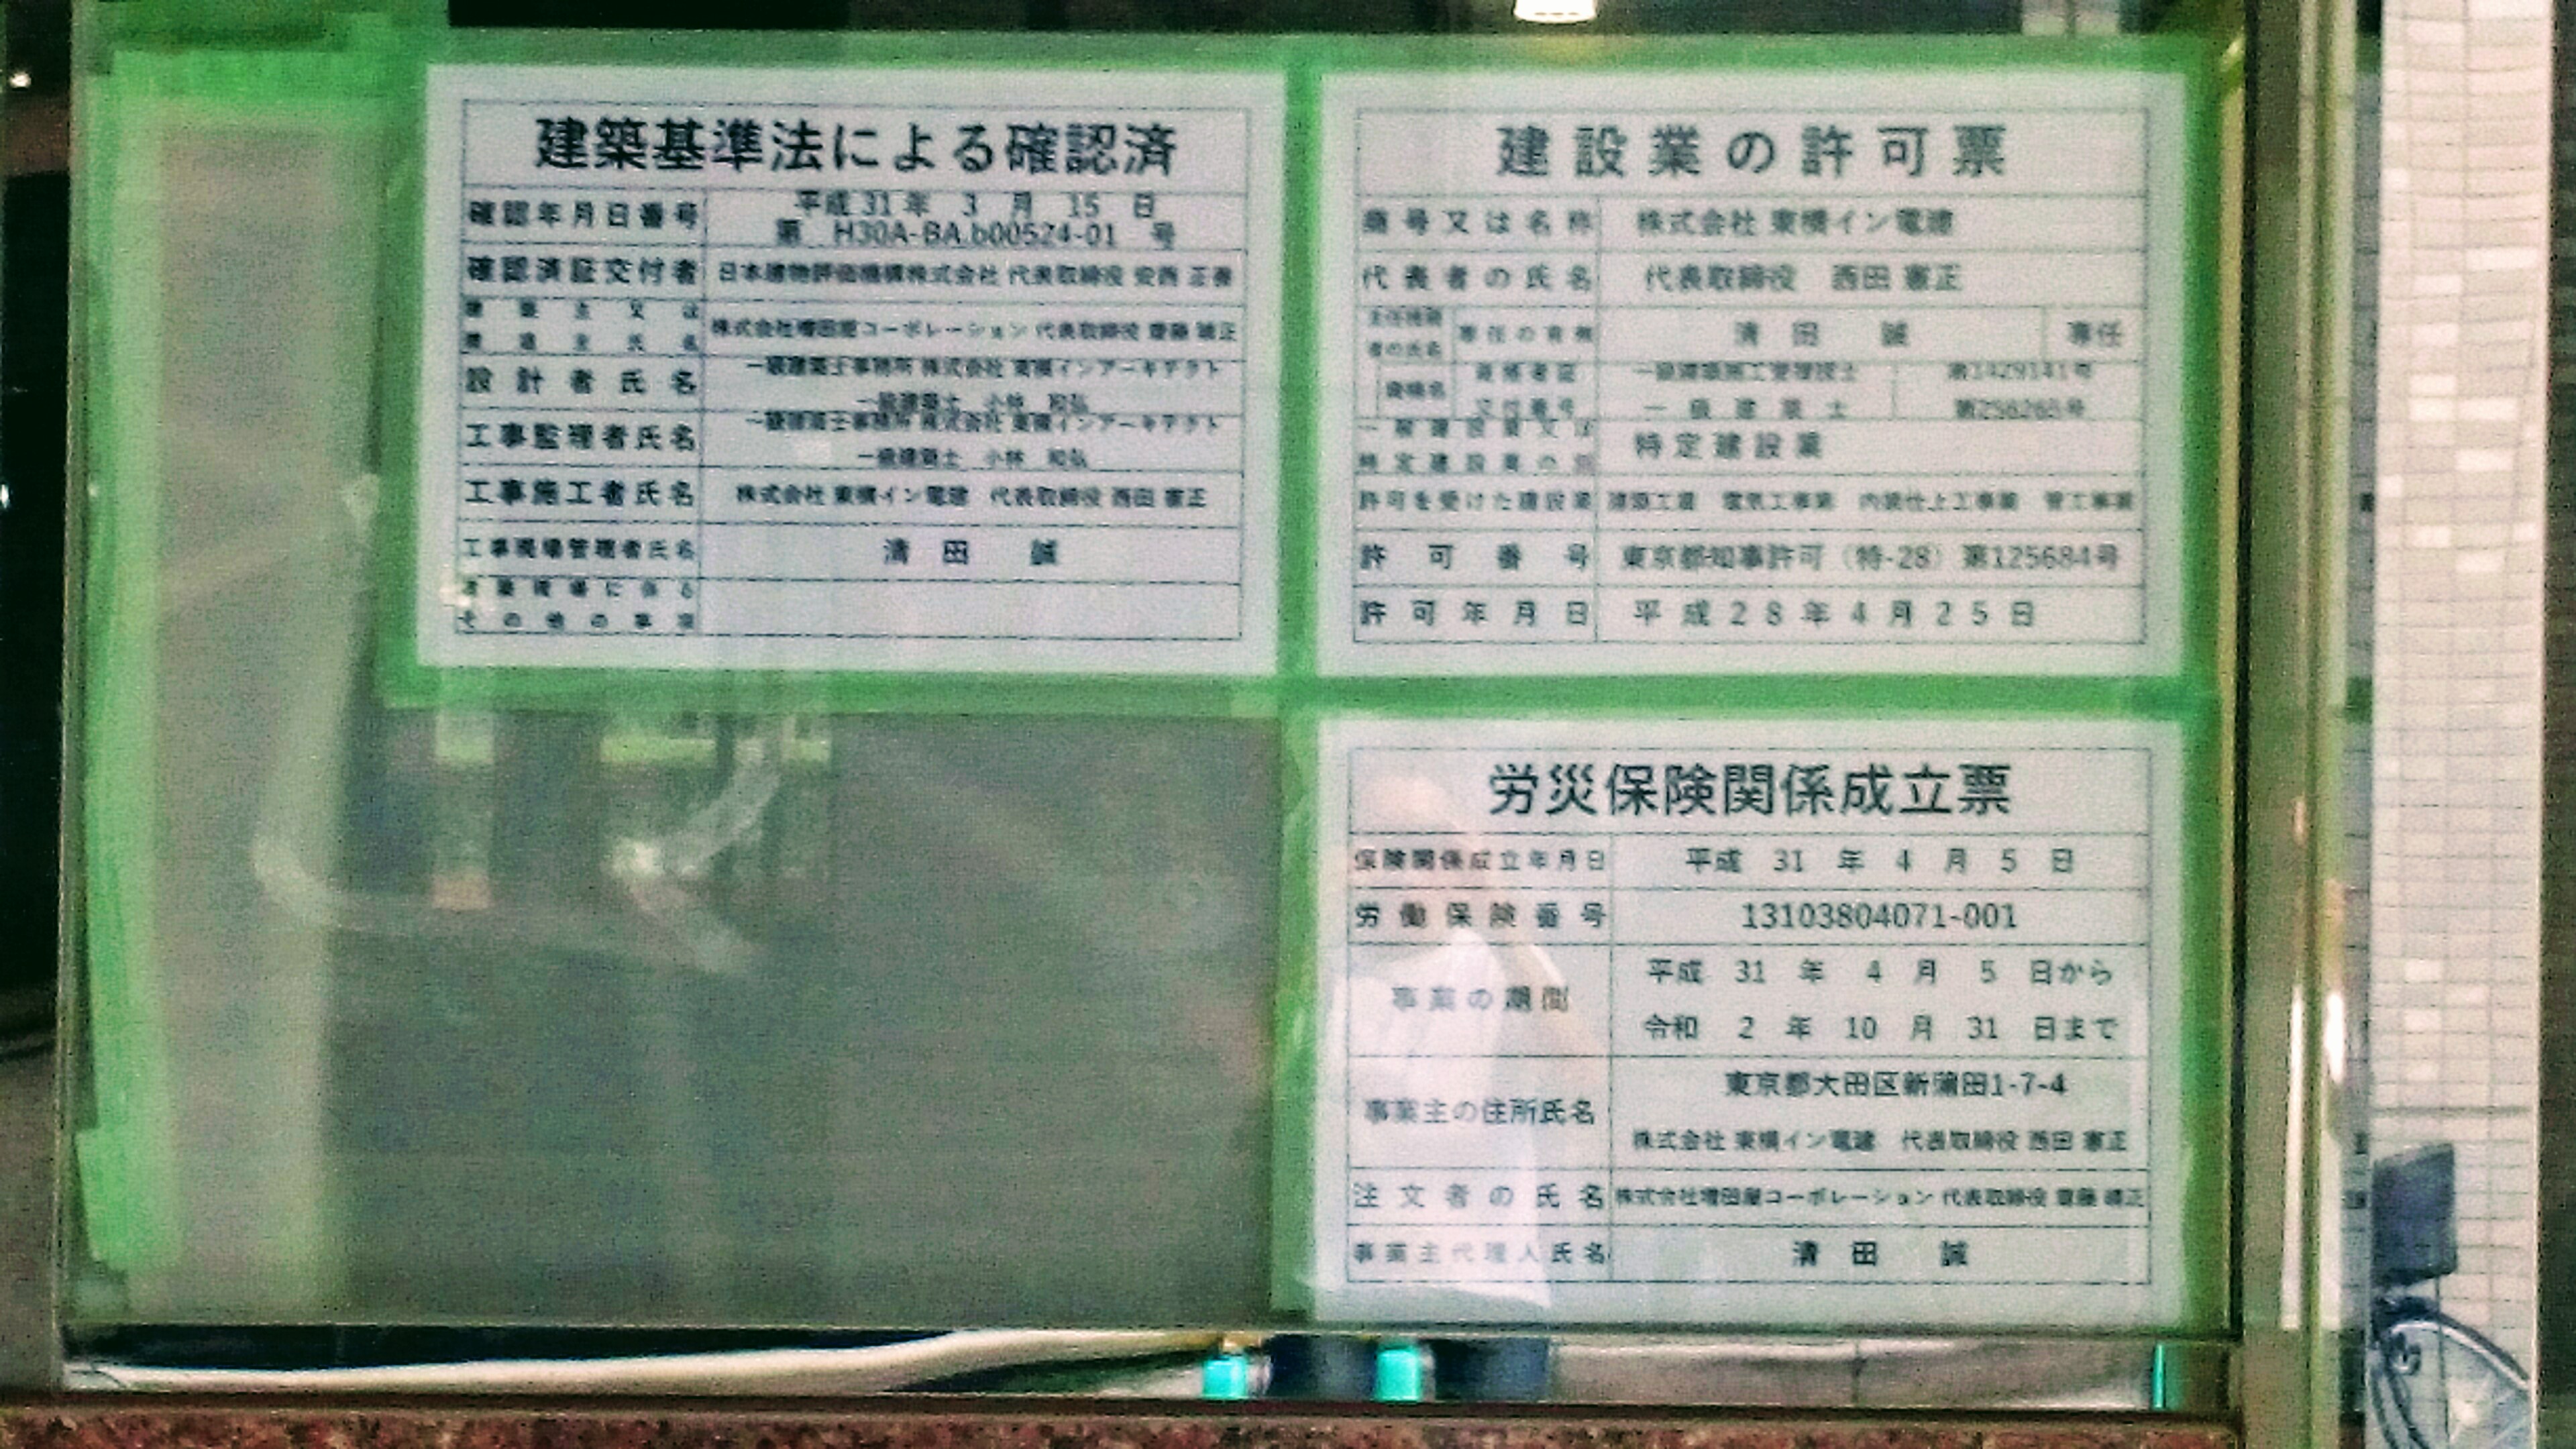 建築基準法による確認済
確認年月日番号
平成 31 年 3 月 15 日
第 H30A-BA.b00524-01 号
確認済証交付者
日本建物評価機構株式会社 代表取締役 安西 正
建築主又は
築造主氏名
株式会社増田屋コーポレーション 代表取締役 齋藤 晴正
設計者氏名
一級建築士事務所 株式会社 東横インアーキテクト
一級建築士 小林 和弘
工事監理者氏名
一級建築士事務所 株式会社 東横インアーキテクト
一級建築士 小林 和弘
工事施工者氏名
株式会社 東横イン電建 代表取締役 西田 憲正
工事現場管理者氏名
清田 誠
建築現場に係る
その他の事項
建設業の許可票
商号又は名称
株式会社 東横イン電建
代表者の氏名
代表取締役 西田 憲正
主任技術
者の氏名
専任の有無
清田 誠
専任
資格名
資格者証
交付番号
一級建築施工管理技士
第1429141号
一級建築士
第258265号
一般建設業又は
特定建設業の別
特定建設業
許可を受けた建設業
建築工事業 電気工事業 内装仕上工事業 管工事業
許可番号
東京都知事許可（特-28）第125684号
許可年月日
平成28年4月25日
労災保険関係成立票
保険関係成立年月日
平成 31 年 4 月 5 日
労働保険番号
13103804071-001
事業の期間
平成 31 年 4 月 5 日から
令和 2 年 10 月 31 日まで
事業主の住所氏名
東京都大田区新蒲田1-7-4
株式会社 東横イン電建 代表取締役 西田 憲正
注文者の氏名
株式会社増田屋コーポレーション 代表取締役 齋藤 晴正
事業主代理人氏名
清田 誠